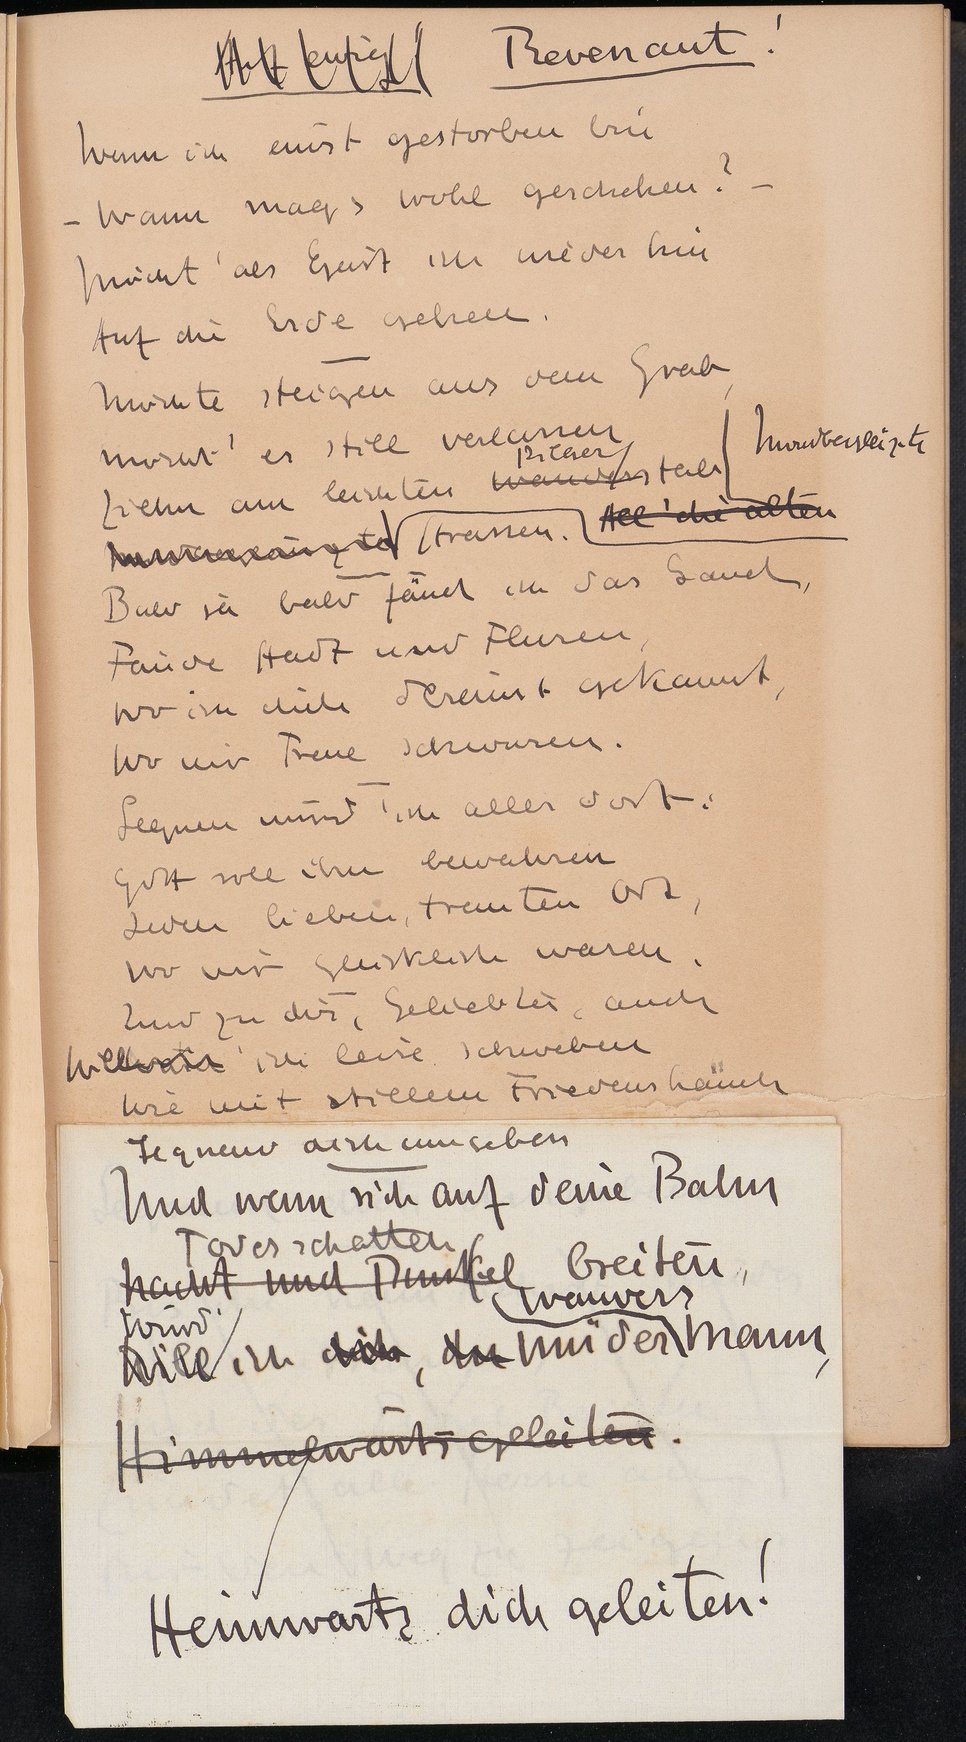 Revenant!
Wenn ich einst gestorben bin
- Wann mag's wohl geschehen? -
Möcht' als Geist ich wieder hin
Auf die Erde gehen.
Möchte steigen aus dem Grab,
Möcht' es still verlassen
Pilger
Ziehn am leichten Wanderstab
Mondbeglänzte
Strassen. All' die alten
Bald ja bald fänd ich das Land,
Fände Stadt und Fluren,
Wo ich dich dereinst gekannt,
Wo wir Treue schwuren.
Segnen würd' ich alles dort:
Gott soll ihn bewahren
Jeden lieben, trauten Ort,
Wo wir glücklich waren.
Und zu dir, Geliebter, auch
Will ich leise schweben
Wie mit stillem Friedenshauch
Segnend dich umgeben
Und wenn sich auf deine Bahn
Todesschatten
Nacht und Dunkel breiten,
Wanders
Würd'
Will ich dich, du müder Mann,
Himmelwärts geleiten.
Heimwärts dich geleiten!